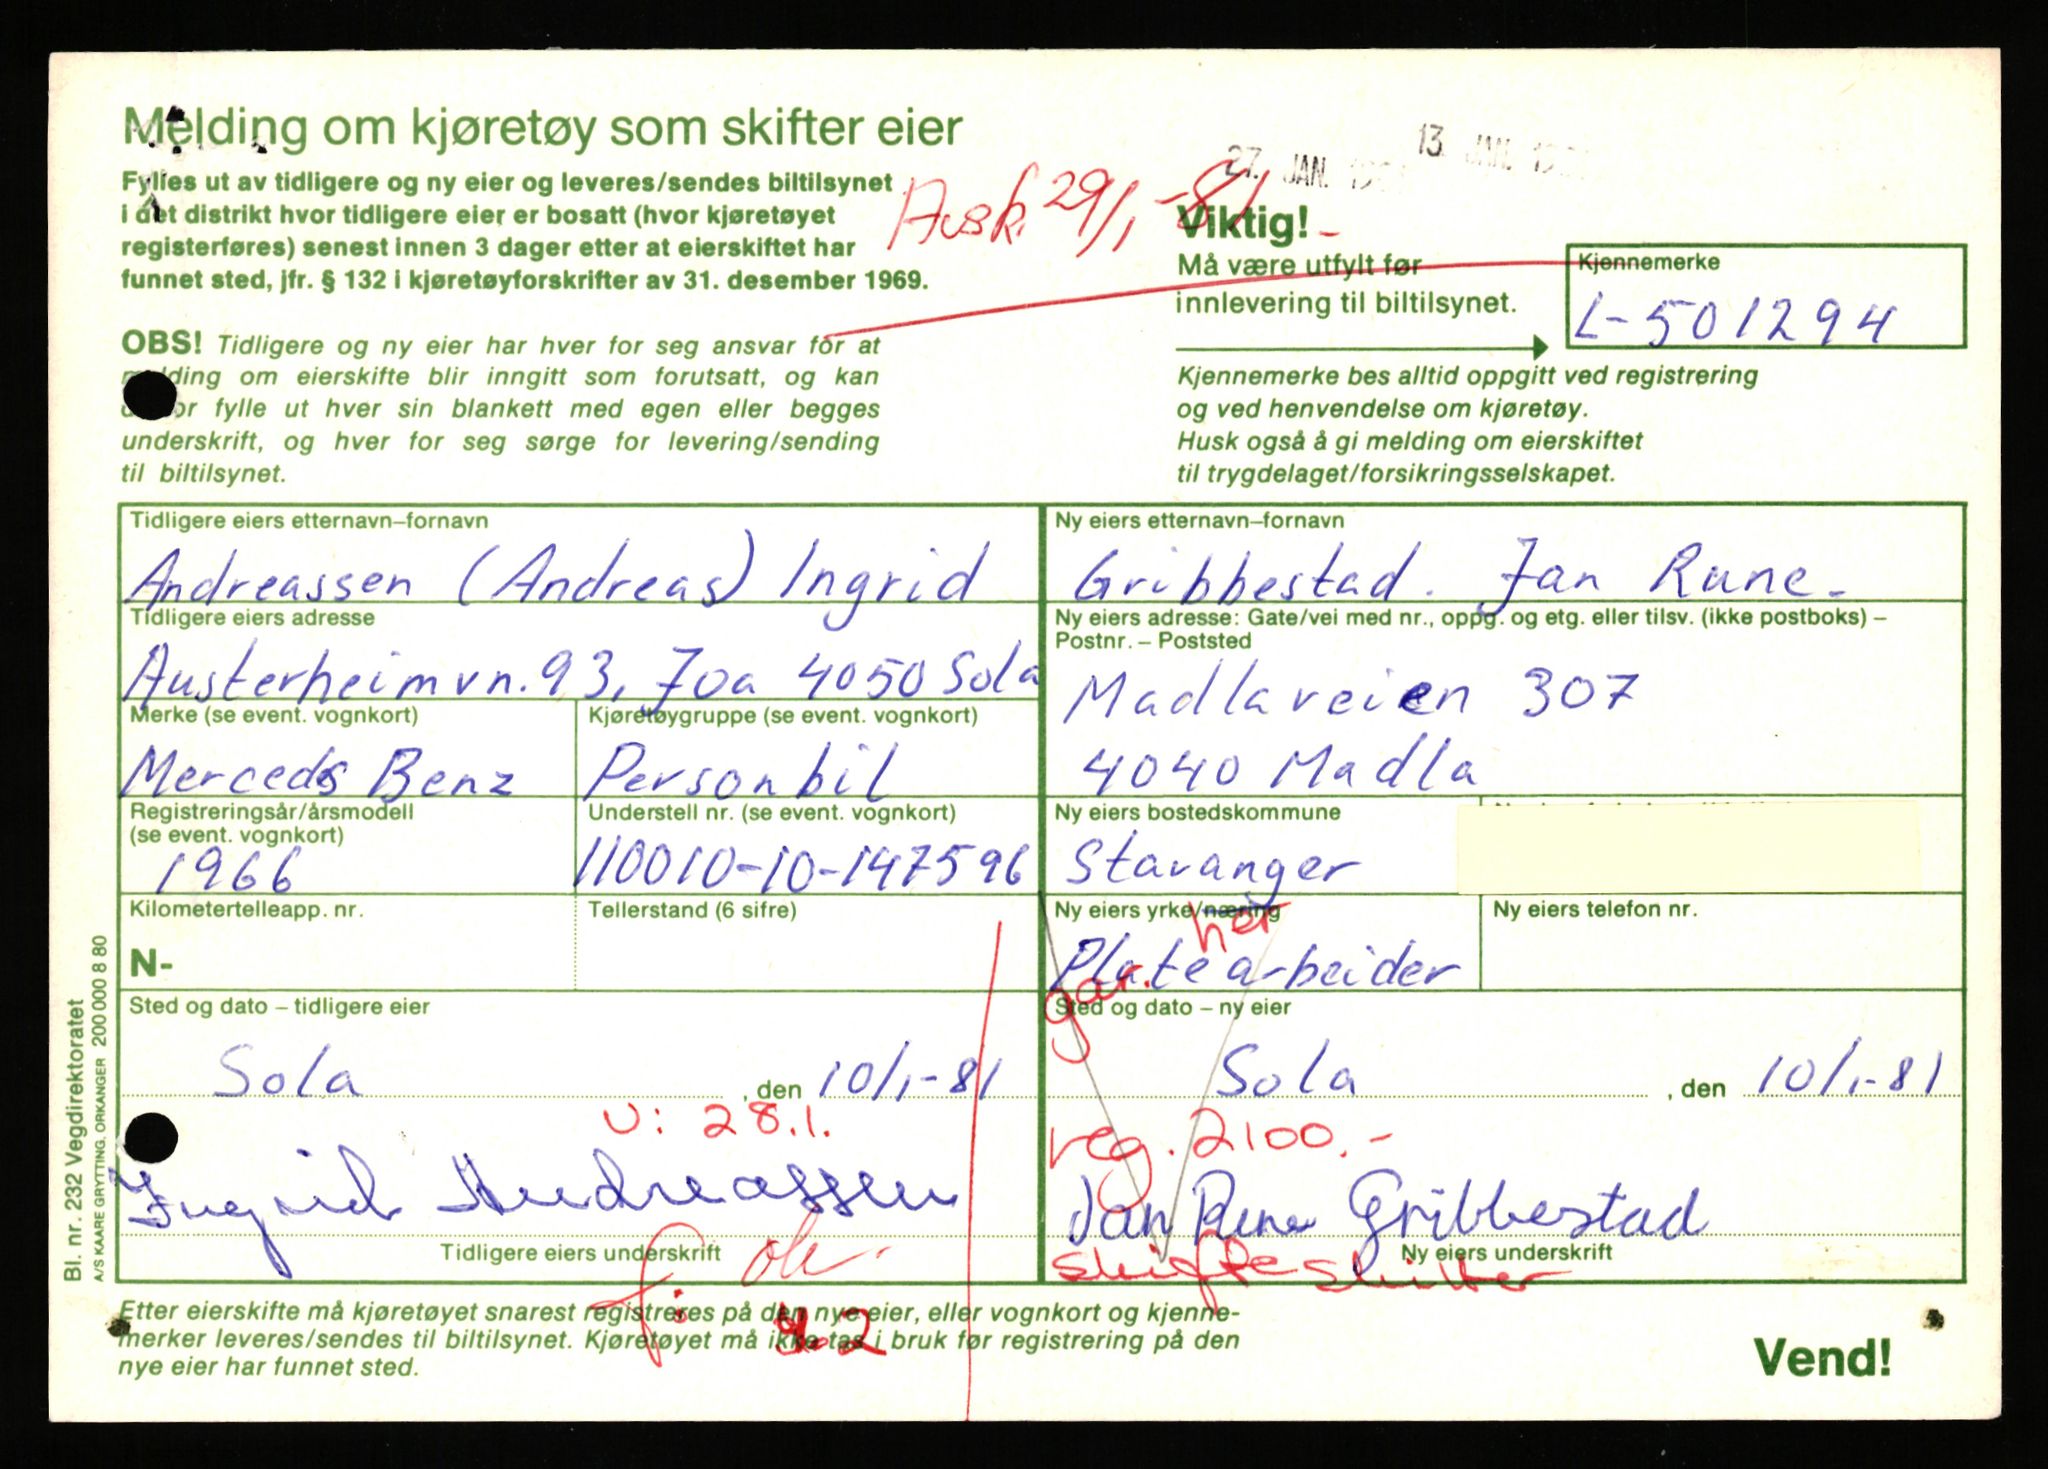 Melding om kjøretøy som skifter eier
Fylles ut av tidligere og ny eier og leveres/sendes biltilsynet
i det distrikt hvor tidligere eier er bosatt (hvor kjøretøyet
registerføres) senest innen 3 dager etter at eierskiftet har
funnet sted, jfr. § 132 i kjøretøyforskrifter av 31. desember 1969.
Avsk. 29/1-81
27. JAN.
13. JAN.
Viktig!
Må være utfylt før
innlevering til biltilsynet.
Kjennemerke
L-501294
OBS! Tidligere og ny eier har hver for seg ansvar for at
melding om eierskifte blir inngitt som forutsatt, og kan
derfor fylle ut hver sin blankett med egen eller begges
underskrift, og hver for seg sørge for levering/sending
til biltilsynet.
Kjennemerke bes alltid oppgitt ved registrering
og ved henvendelse om kjøretøy.
Husk også å gi melding om eierskiftet
til trygdelaget/forsikringsselskapet.
Tidligere eiers etternavn–fornavn
Andreassen (Andreas) Ingrid
Tidligere eiers adresse
Austerheimvn. 93, Joa 4050 Sola
Merke (se event. vognkort)
Mercedes Benz
Kjøretøygruppe (se event. vognkort)
Personbil
Registreringsår/årsmodell
(se event. vognkort)
1966
Understell nr. (se event. vognkort)
110010-10-147596
Kilometertelleapp. nr.
N-
Tellerstand (6 sifre)
Sted og dato – tidligere eier
Sola , den 10/1-81
U: 28.1.
Ingrid Andreassen
Tidligere eiers underskrift
ok
Ny eiers etternavn–fornavn
Gribbestad. Jan Rune.
Ny eiers adresse: Gate/vei med nr., oppg. og etg. eller tilsv. (ikke postboks) –
Postnr. – Poststed
Madlaveien 307
4040 Madla
Ny eiers bostedskommune
Stavanger
Ny eiers yrke/næring
Platearbeider
her
gar.
Ny eiers telefon nr.
Sted og dato – ny eier
Sola , den 10/1-81
reg. 2100.-
Jan Rune Gribbestad
Ny eiers underskrift
skifte skilter
Etter eierskifte må kjøretøyet snarest registreres på den nye eier, eller vognkort og kjenne-
merker leveres/sendes til biltilsynet. Kjøretøyet må ikke tas i bruk før registrering på den
nye eier har funnet sted.
Vend!
Bl. nr. 232 Vegdirektoratet
A/S KAARE GRYTTING, ORKANGER 200 000 8 80